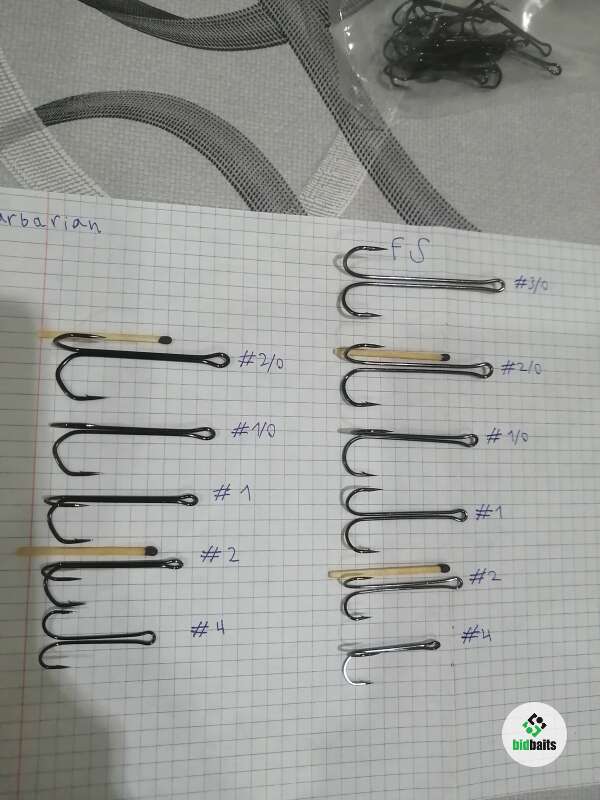 arbarian
FS
#3/0
#2/0
#1/0
#1
#2
#4
#2/0
#1/0
#1
#2
#4
bidbaits